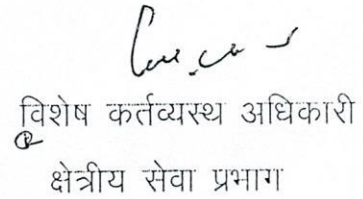 विशेष कर्तव्यस्थ अधिकारी
क्षेत्रीय सेवा प्रभाग